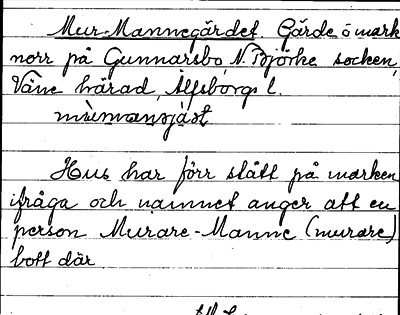 Mur-Mannegärdet. Gärde å mark
norr på Gunnarsbo N. Björke socken,
Väne härad, Älfsborgs l.
Hus har förr stått på marken
ifråga och namnet anger att en
person Murare-Manne (murare)
bott där